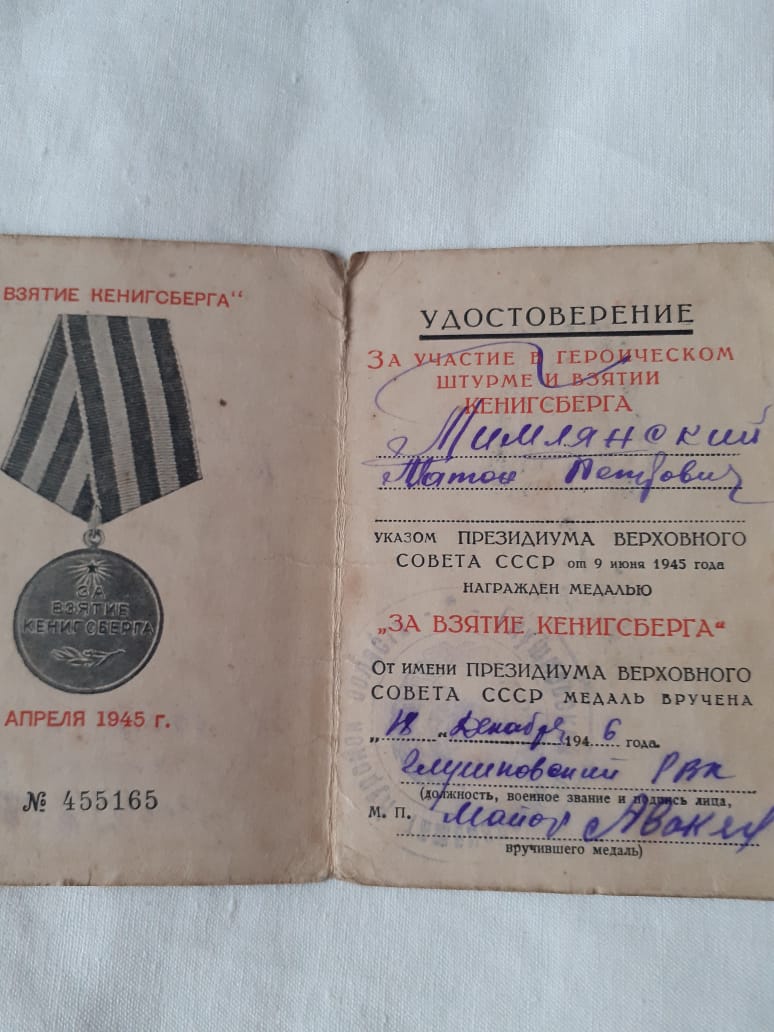 ВЗЯТИЕ КЕНИГСБЕРГА“
ЗА
ВЗЯТИЕ
КЕНИГСБЕРГА
АПРЕЛЯ 1945 г.
№ 455165
УДОСТОВЕРЕНИЕ
ЗА УЧАСТИЕ В ГЕРОИЧЕСКОМ
ШТУРМЕ И ВЗЯТИИ
КЕНИГСБЕРГА
Мимлянский
Петрович
УКАЗОМ ПРЕЗИДИУМА ВЕРХОВНОГО
СОВЕТА СССР от 9 июня 1945 года
НАГРАЖДЕН МЕДАЛЬЮ
„ЗА ВЗЯТИЕ КЕНИГСБЕРГА“
От имени ПРЕЗИДИУМА ВЕРХОВНОГО
СОВЕТА СССР МЕДАЛЬ ВРУЧЕНА
„18 “ Декабря 1946 года.
Глушковский РВК
(должность, военное звание и подпись лица,
М. П. Майор
вручившего медаль)